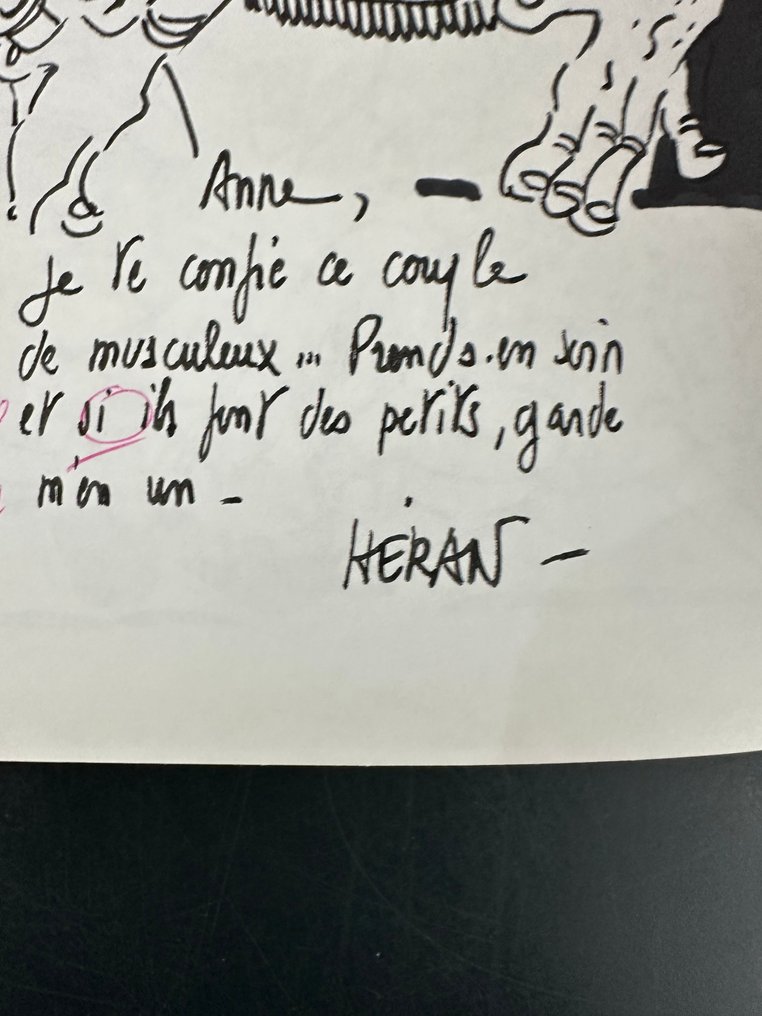 Anne, -
Je te confie ce couple
de musculeux... Prends-en soin
et si ils font des petits, garde
m'en un -
HERAN -